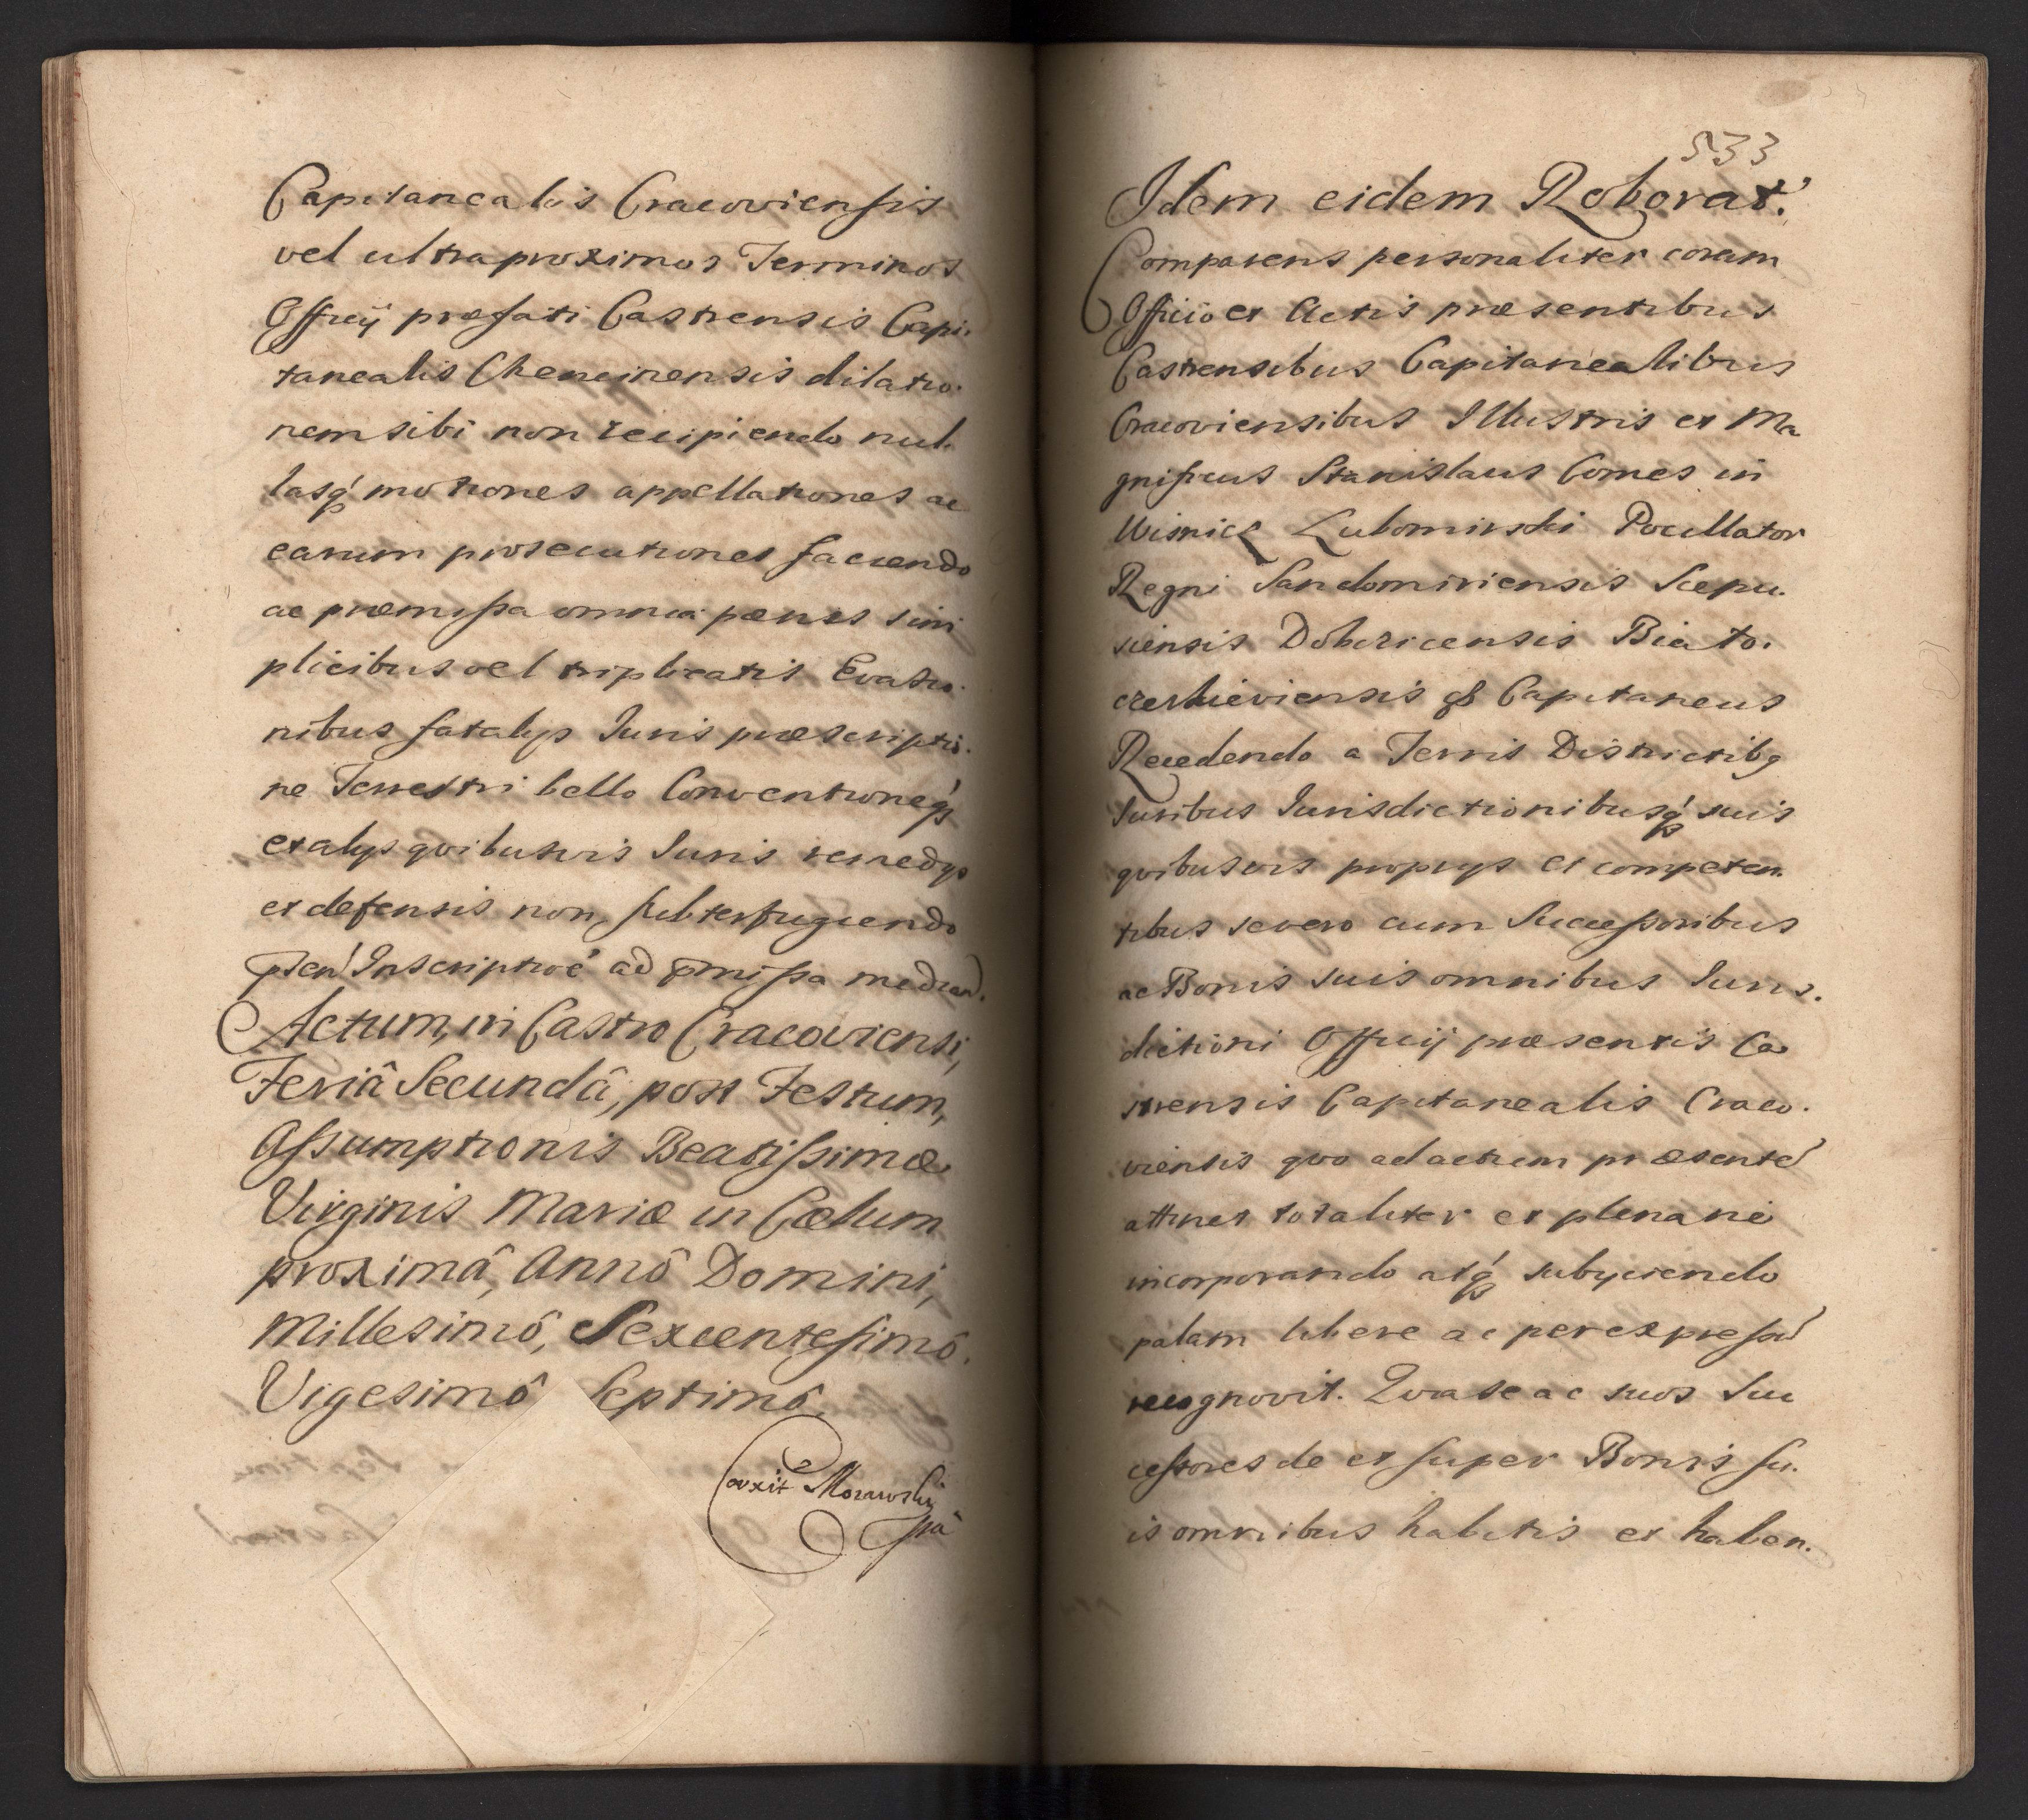 Capitanealis Cracoviensis
vel ultraproximos Terminos
Officij præfati Castrensis Capi.
tanealis Chencinensis dilatio.
nem sibi non recipiendo nul.
lasq́ motiones appellationes ac
earum prosecutiones faciendo
ac præmissa omnia pænes sim
plicibus vel triplicatis Evasio.
nibus fatalys Iuris præscriptio.
ne Terrestri bello Conventioneq́
et alys qvibusvis Iuris remedys
et defensis non, subterfugiendo
pñten Inscriptioe ad pmissa median.
Actum, in Castro Cracoviensi,
Feriâ Secundâ, post Festum,
Assumptionis Beatissimæ
Virginis Mariæ in Cælum
proximâ, Annô Domini,
Millesimô, Sexcentesimô.
Vigesimô Septimô.
Corxit Morawsky
mpa
533
Idem eidem Roborat.
Comparens personaliter coram
Officio et Actis præsentibus
Castrensibus Capitanealibus
Cracoviensibus Illustris et Ma
gnificus Stanislaus Comes in
Wisnicz Lubomirski Pocillator
Regni Sandomiriensis Scepu.
siensis Dobczicensis Biało.
czerkieviensis & Capitaneus
Recedendo a Terris Districtibq
Iuribus Iurisdictionibusq́ suis
qvibusvis proprys et competen.
tibus severo cum Successoribus
ac Bonis suis omnibus Iuris.
dictioni Officij præsentis Ca
strensis Capitanealis Craco.
viensis qvo ad actum præsente
attinet totaliter et plenarie
incorporando atq́ subyciendo
palam libere ac per expressu
recognovit. Qvia se ac suos Suc
cessores de et super Bonis su.
is omnibus habitis et haben.